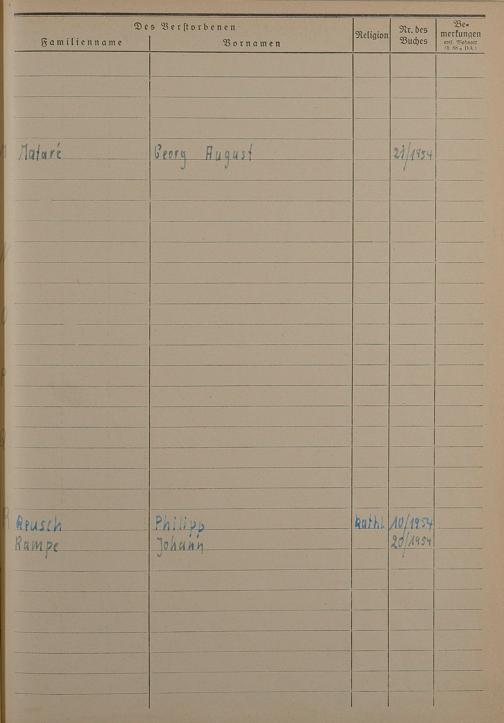 Des Verstorbenen
Familienname Vornamen Religion Nr. des Buches Be-merkungen
Mataré Georg August 21/1954
Reusch Philipp kath. 10/1954
Rampe Johann 20/1954